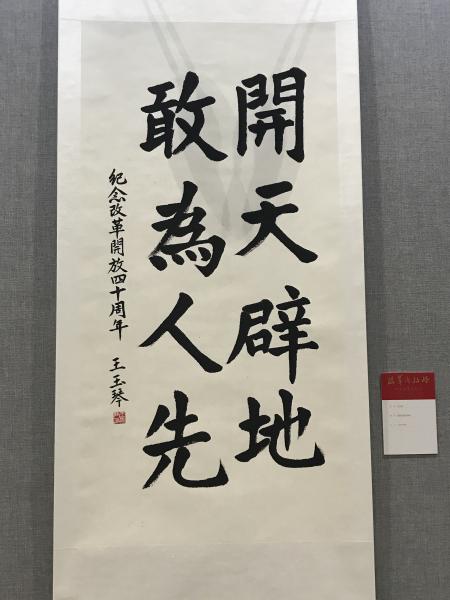 開天辟地
敢為人先
紀念改革開放四十周年 王玉琴